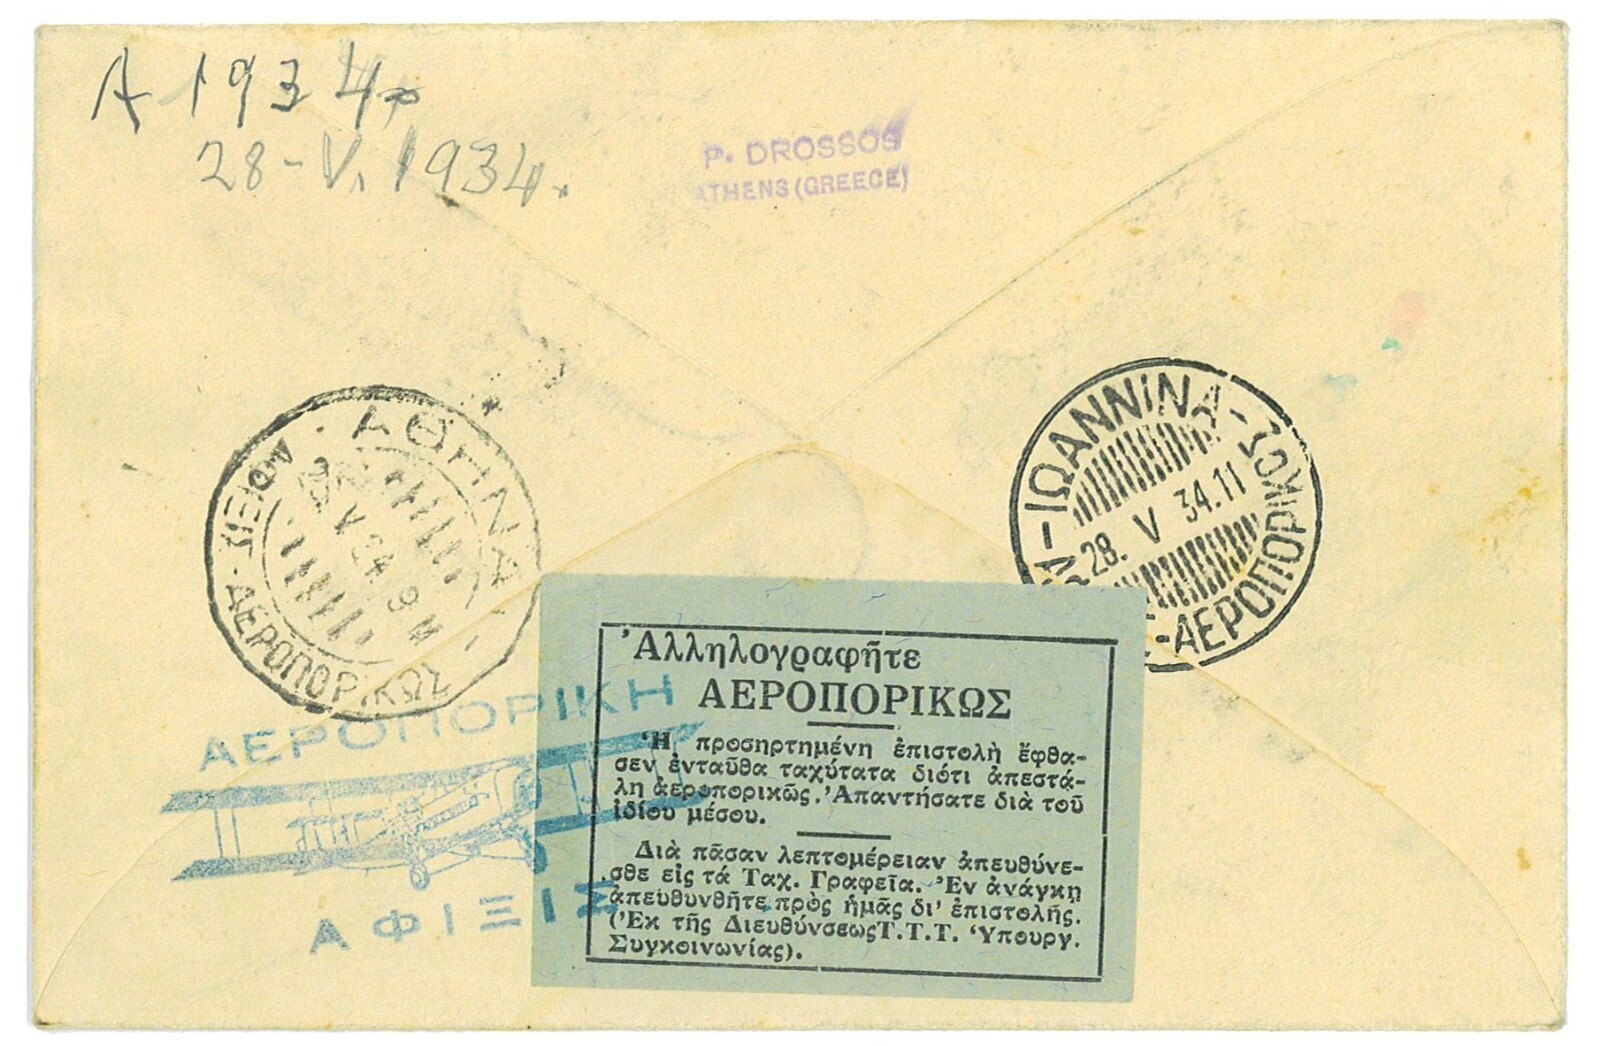 A 1934
28-V.1934.
P. DROSSOS
ATHENS (GREECE)
ΑΘΗΝΑΙ
ΑΕΡΟΠΟΡΙΚΩΣ
V 34 9 Μ
ΙΩΑΝΝΙΝΑ
28. V 34.11
ΑΕΡΟΠΟΡΙΚΩΣ
ΑΕΡΟΠΟΡΙΚΗ
ΑΦΙΞΙΣ
Ἀλληλογραφῆτε
ΑΕΡΟΠΟΡΙΚΩΣ
Ἡ προσηρτημένη ἐπιστολὴ ἔφθα-
σεν ἐνταῦθα ταχύτατα διότι ἀπεστά-
λη ἀεροπορικῶς. Ἀπαντήσατε διὰ τοῦ
ἰδίου μέσου.
Διὰ πᾶσαν λεπτομέρειαν ἀπευθύνε-
σθε εἰς τά Ταχ. Γραφεῖα. Ἐν ἀνάγκῃ
ἀπευθυνθῆτε πρὸς ἡμᾶς δι' ἐπιστολῆς.
(Ἐκ τῆς Διευθύνσεως Τ.Τ.Τ. Ὑπουργ.
Συγκοινωνίας).